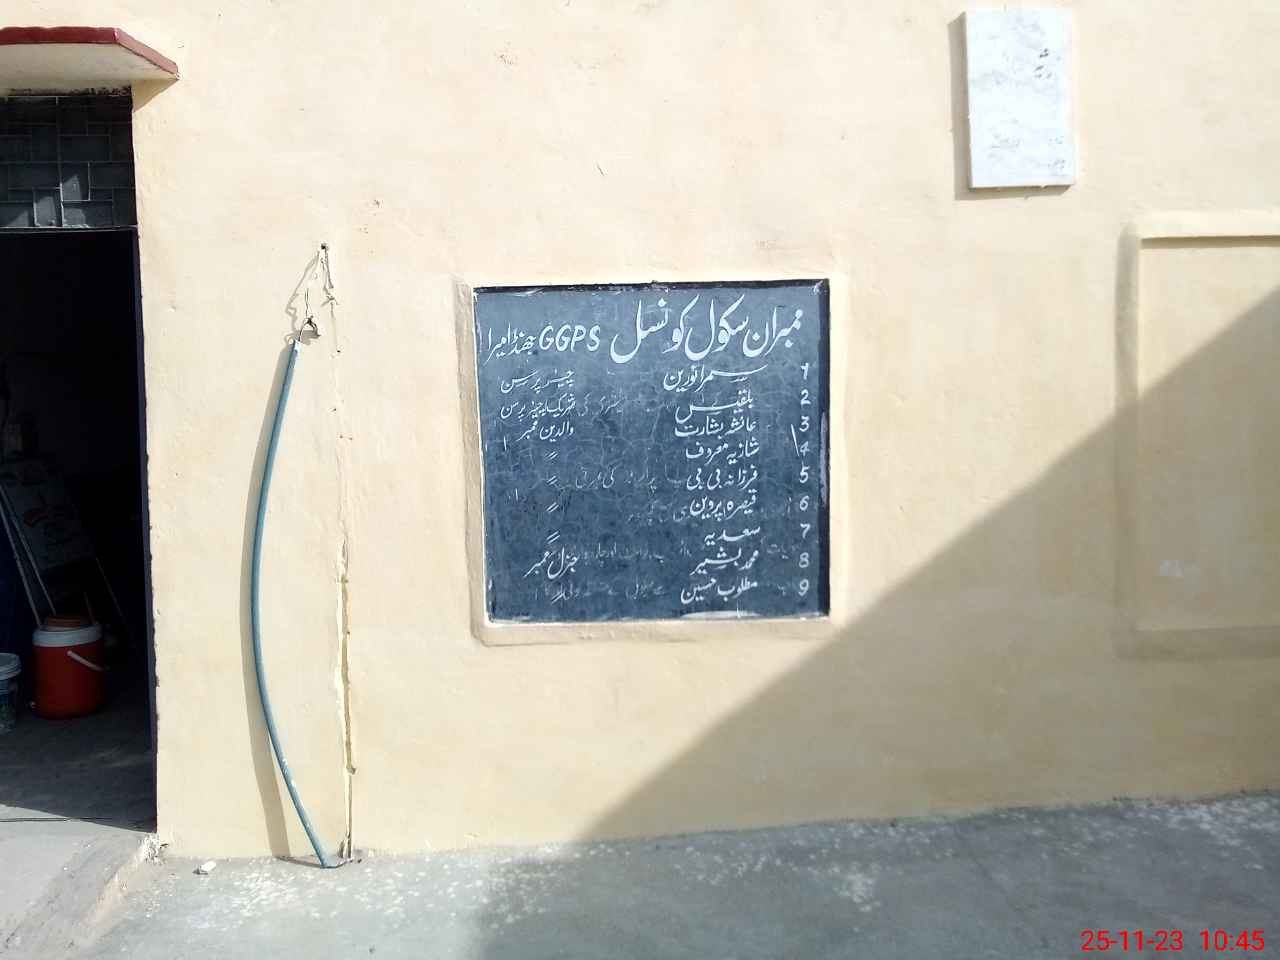 ممبران سکول کونسل GGPS جھنڈا میرا
1 سمرا نورین چیئر پرسن
2 بلقیس شریک چیئر پرسن
3 عائشہ بشارت والدین ممبر
4 شازیہ معروف 〃
5 فرزانہ بی بی 〃
6 قیصرہ پروین 〃
7 سعدیہ 〃
8 محمد بشیر جنرل ممبر
9 مطلوب حسین 〃
25-11-23 10:45